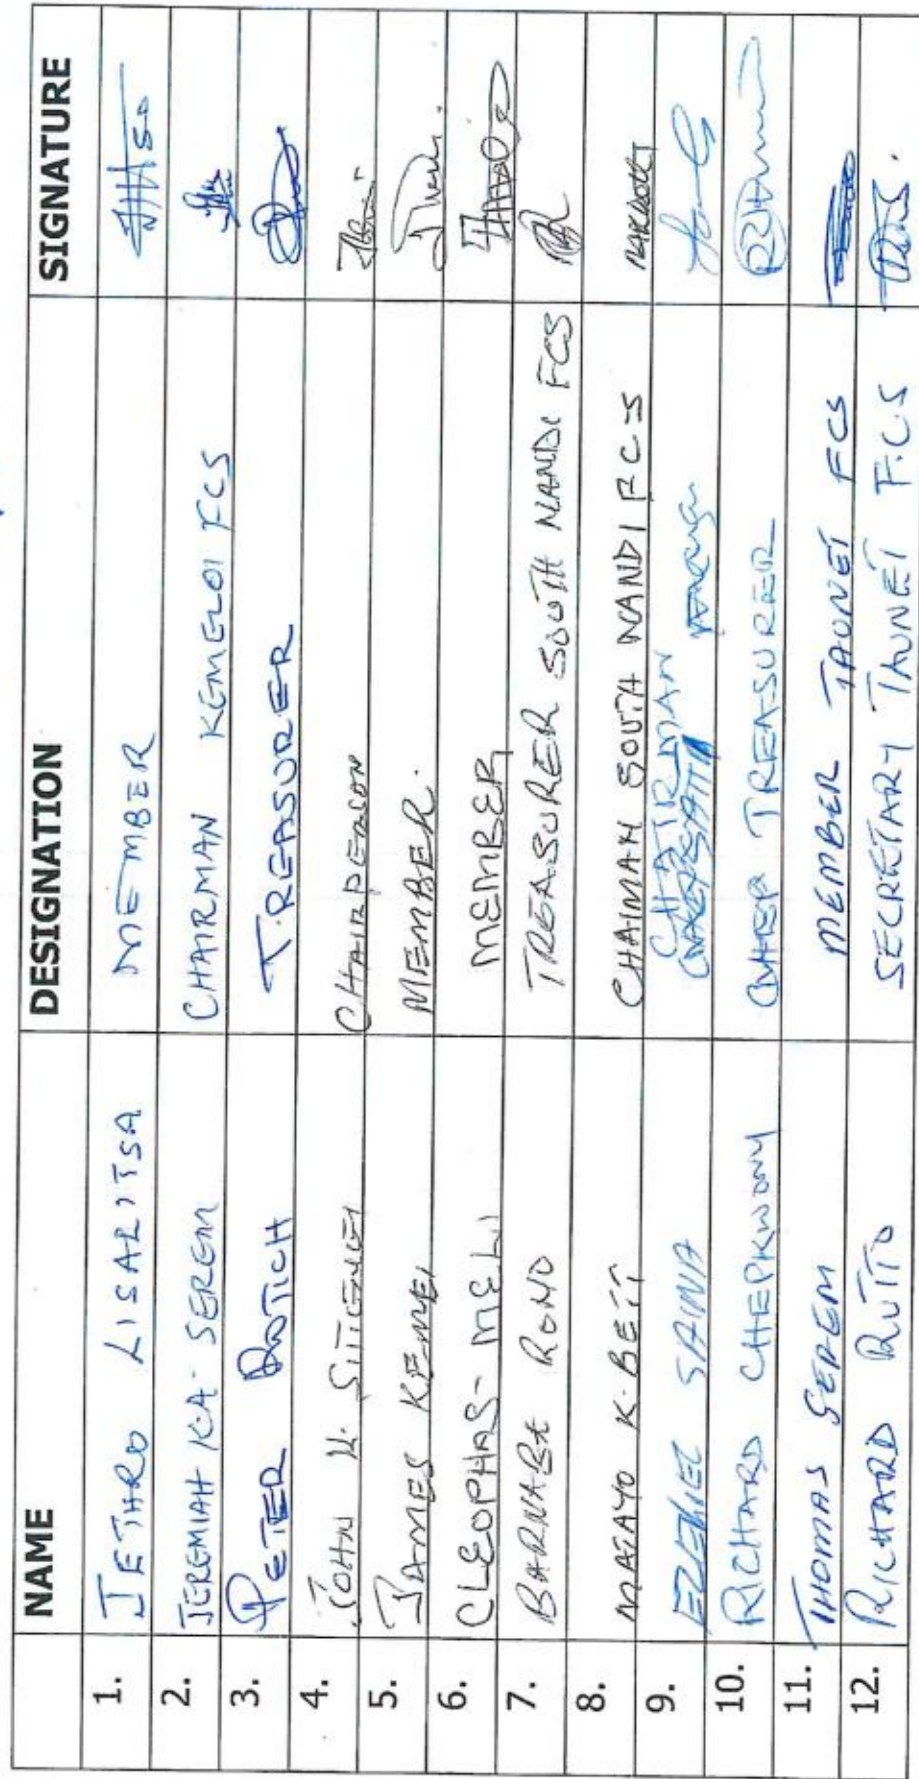 NAME DESIGNATION SIGNATURE
1. JETHRO LISALITSA MEMBER
2. JEREMIAH KA-SEREM CHAIRMAN KEMELOI FCS
3. PETER ROTICH TREASURER
4. JOHN K. SITIENEI CHAIRPERSON
5. JAMES KEMEI MEMBER.
6. CLEOPHAS MELI MEMBER
7. BARNABA RONO TREASURER SOUTH NANDI FCS
8. MAIAYO K. BETT CHAIMAN SOUTH NANDI FCS
9. EZEKIEL SAINA CHAIRMAN
10. RICHARD CHEPKWONY TREASURER
11. THOMAS SEREM MEMBER TAUNET FCS
12. RICHARD RUTTO SECRETARY TAUNET F.C.S